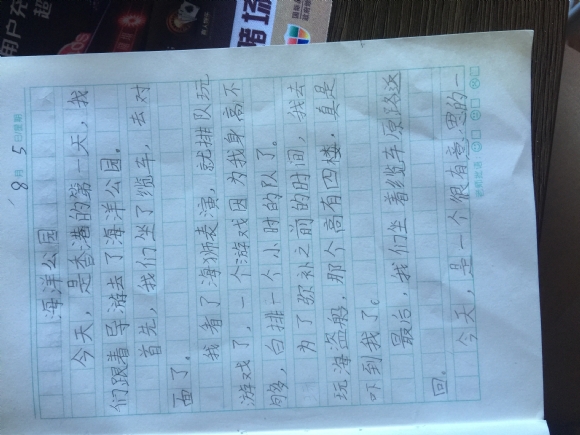 8月5日星期
海洋公园
今天，是香港的第一天，我
们跟着导游去了海洋公园。
首先，我们坐了缆车，去对
面了。
我看了海狮表演，就排队玩
游戏了，一个游戏因为我身高不
够，白排一个小时的队了。
为了弥补之前的时间，我去
玩海盗船，那个高有四楼，真是
吓到我了。
最后，我们坐着缆车原路返
回。
今天，是一个很有意思的一
用户充
超